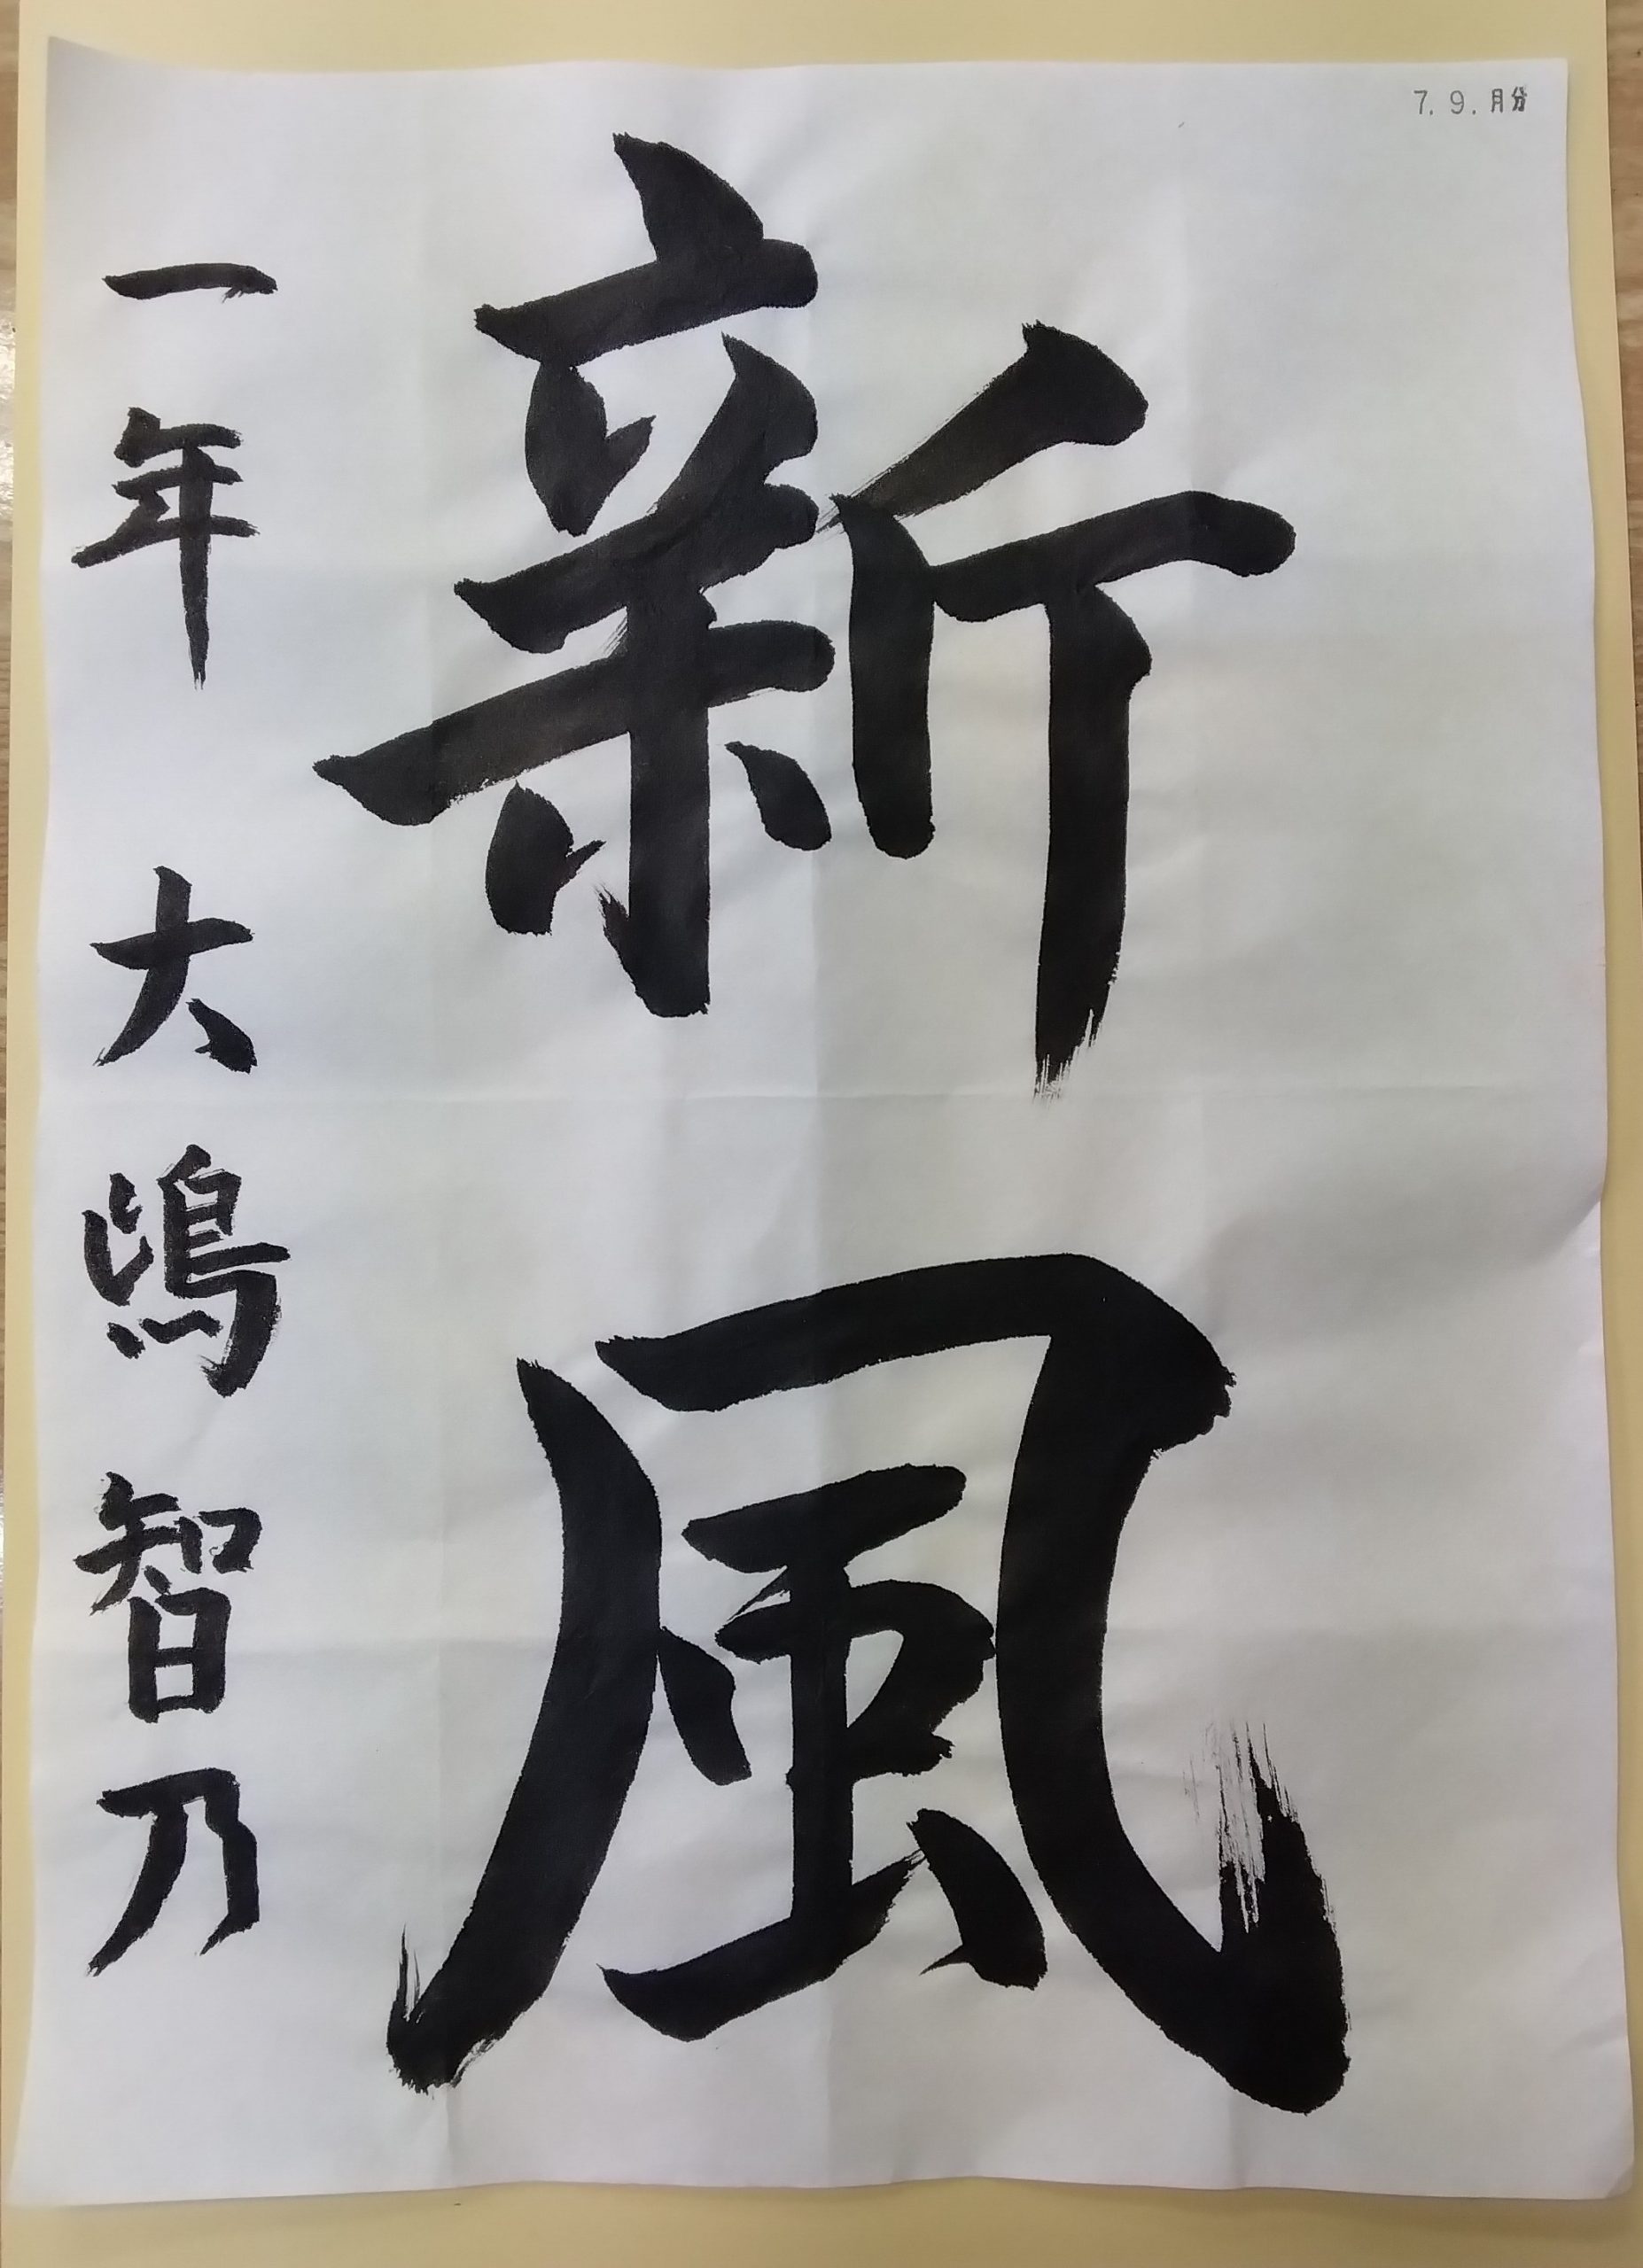 7.9.月分
新風
一年 大嶋智乃